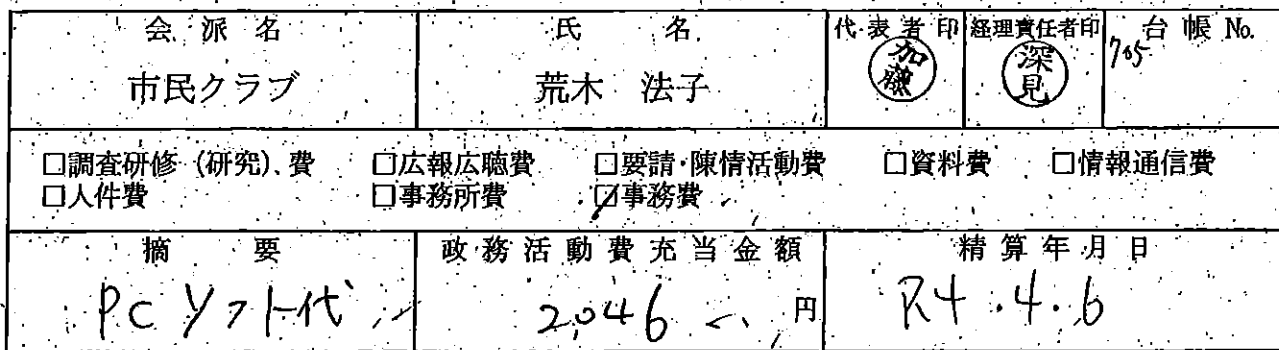 会派名 氏名 代表者印 経理責任者印 台帳No.
市民クラブ 荒木 法子 加藤 深見 705
□調査研修(研究)費 □広報広聴費 □要請・陳情活動費 □資料費 □情報通信費
□人件費 □事務所費 ☑事務費
摘要 政務活動費充当金額 精算年月日
PCソフト代 2,046 円 R4.4.6